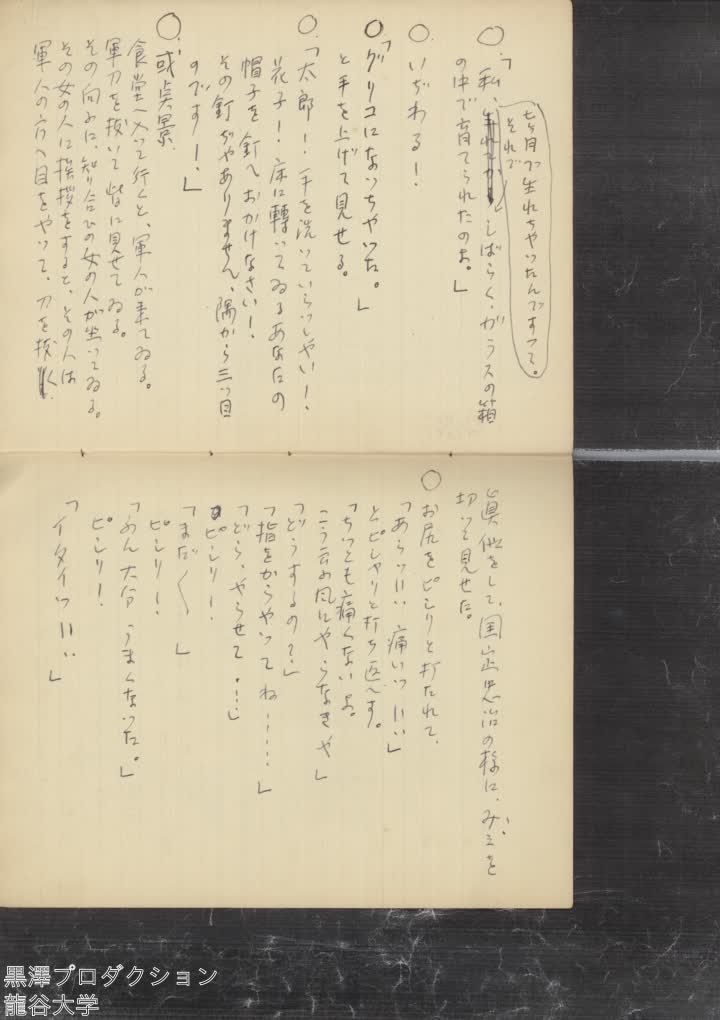 七ヶ月で生れちやつたんですつて。
それで
○「私、しばらく、ガラスの箱
の中で育てられたのよ。」
○いぢわる！
○「グリコになつちやつた。」
と手を上げて見せる。
○「太郎！手を洗いていらつしやい！
花子！床に轉いてゐるあなたの
帽子を釘へおかけなさい！
その釘ぢやありません、隅から三つ目
のです！」
○或点景
食堂へ入つて行くと、軍人が来てゐる。
軍刀を抜いて皆に見せてゐる。
その向ふに、知り合ひの女の人が坐つてゐる。
その女の人に挨拶をすると、その人は
軍人の方へ目をやつて、刀を抜く
眞似をして、国定忠治の様に、みえを
切つて見せた。
○お尻をピシリと打たれて、
「あらッ!! 痛いッ!!」
とピシヤリと打ち返へす。
「ちつとも痛くないよ。
こう云ふ風にやらなきや」
「どうするの？」
「指をからやつてね……」
「どら、やらせて…」
ピシリ！
「まだ〱」
ピシリ！
「うん大分うまくなつた。」
ピシリ！
「イタイッ!!」
黒澤プロダクション
龍谷大学